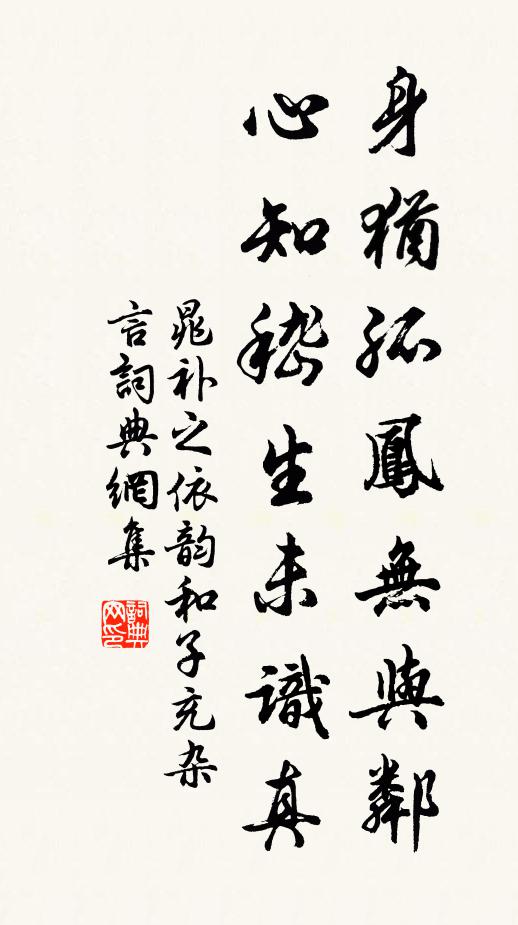 身猶孤鳳無與鄰
心知嵇生未識真
晁补之依韵和子充杂
言詞典網集
詞典网印